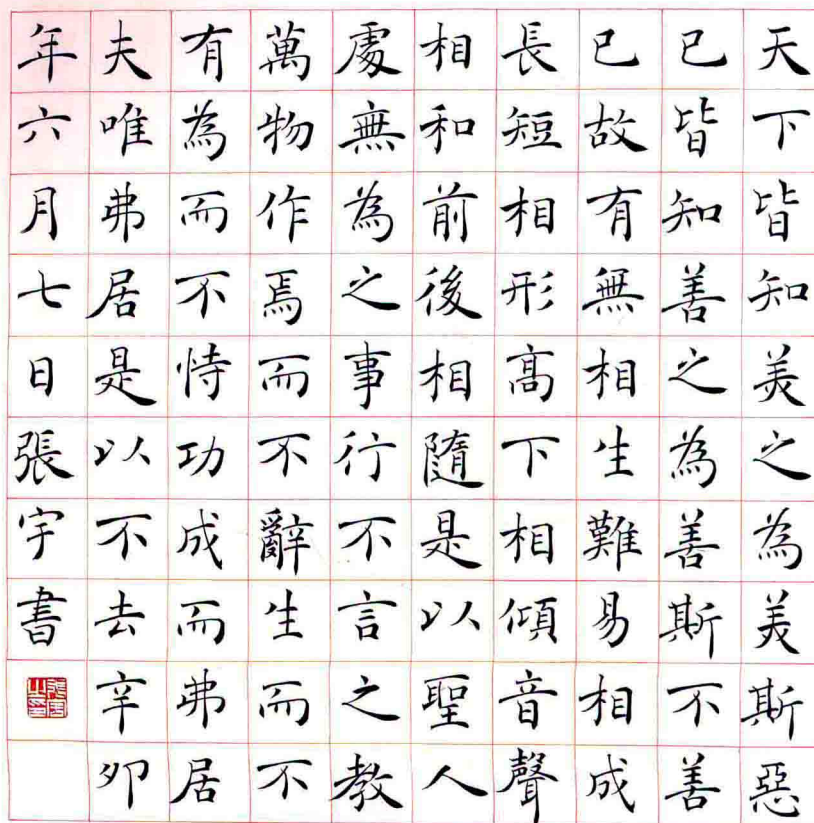 天下皆知美之為美斯惡
已皆知善之為善斯不善
已故有無相生難易相成
長短相形高下相傾音聲
相和前後相隨是以聖人
處無為之事行不言之教
萬物作焉而不辭生而不
有為而不恃功成而弗居
夫唯弗居是以不去辛卯
年六月七日張宇書